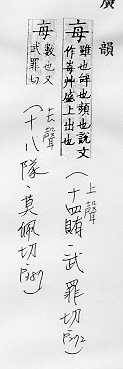 廣韻
每
雖也辝也頻也說文
作每艸盛上出也
上聲
(十四賄．武罪切 P272)
每
數也又
武罪切
去聲
(十八隊．莫佩切 P389)